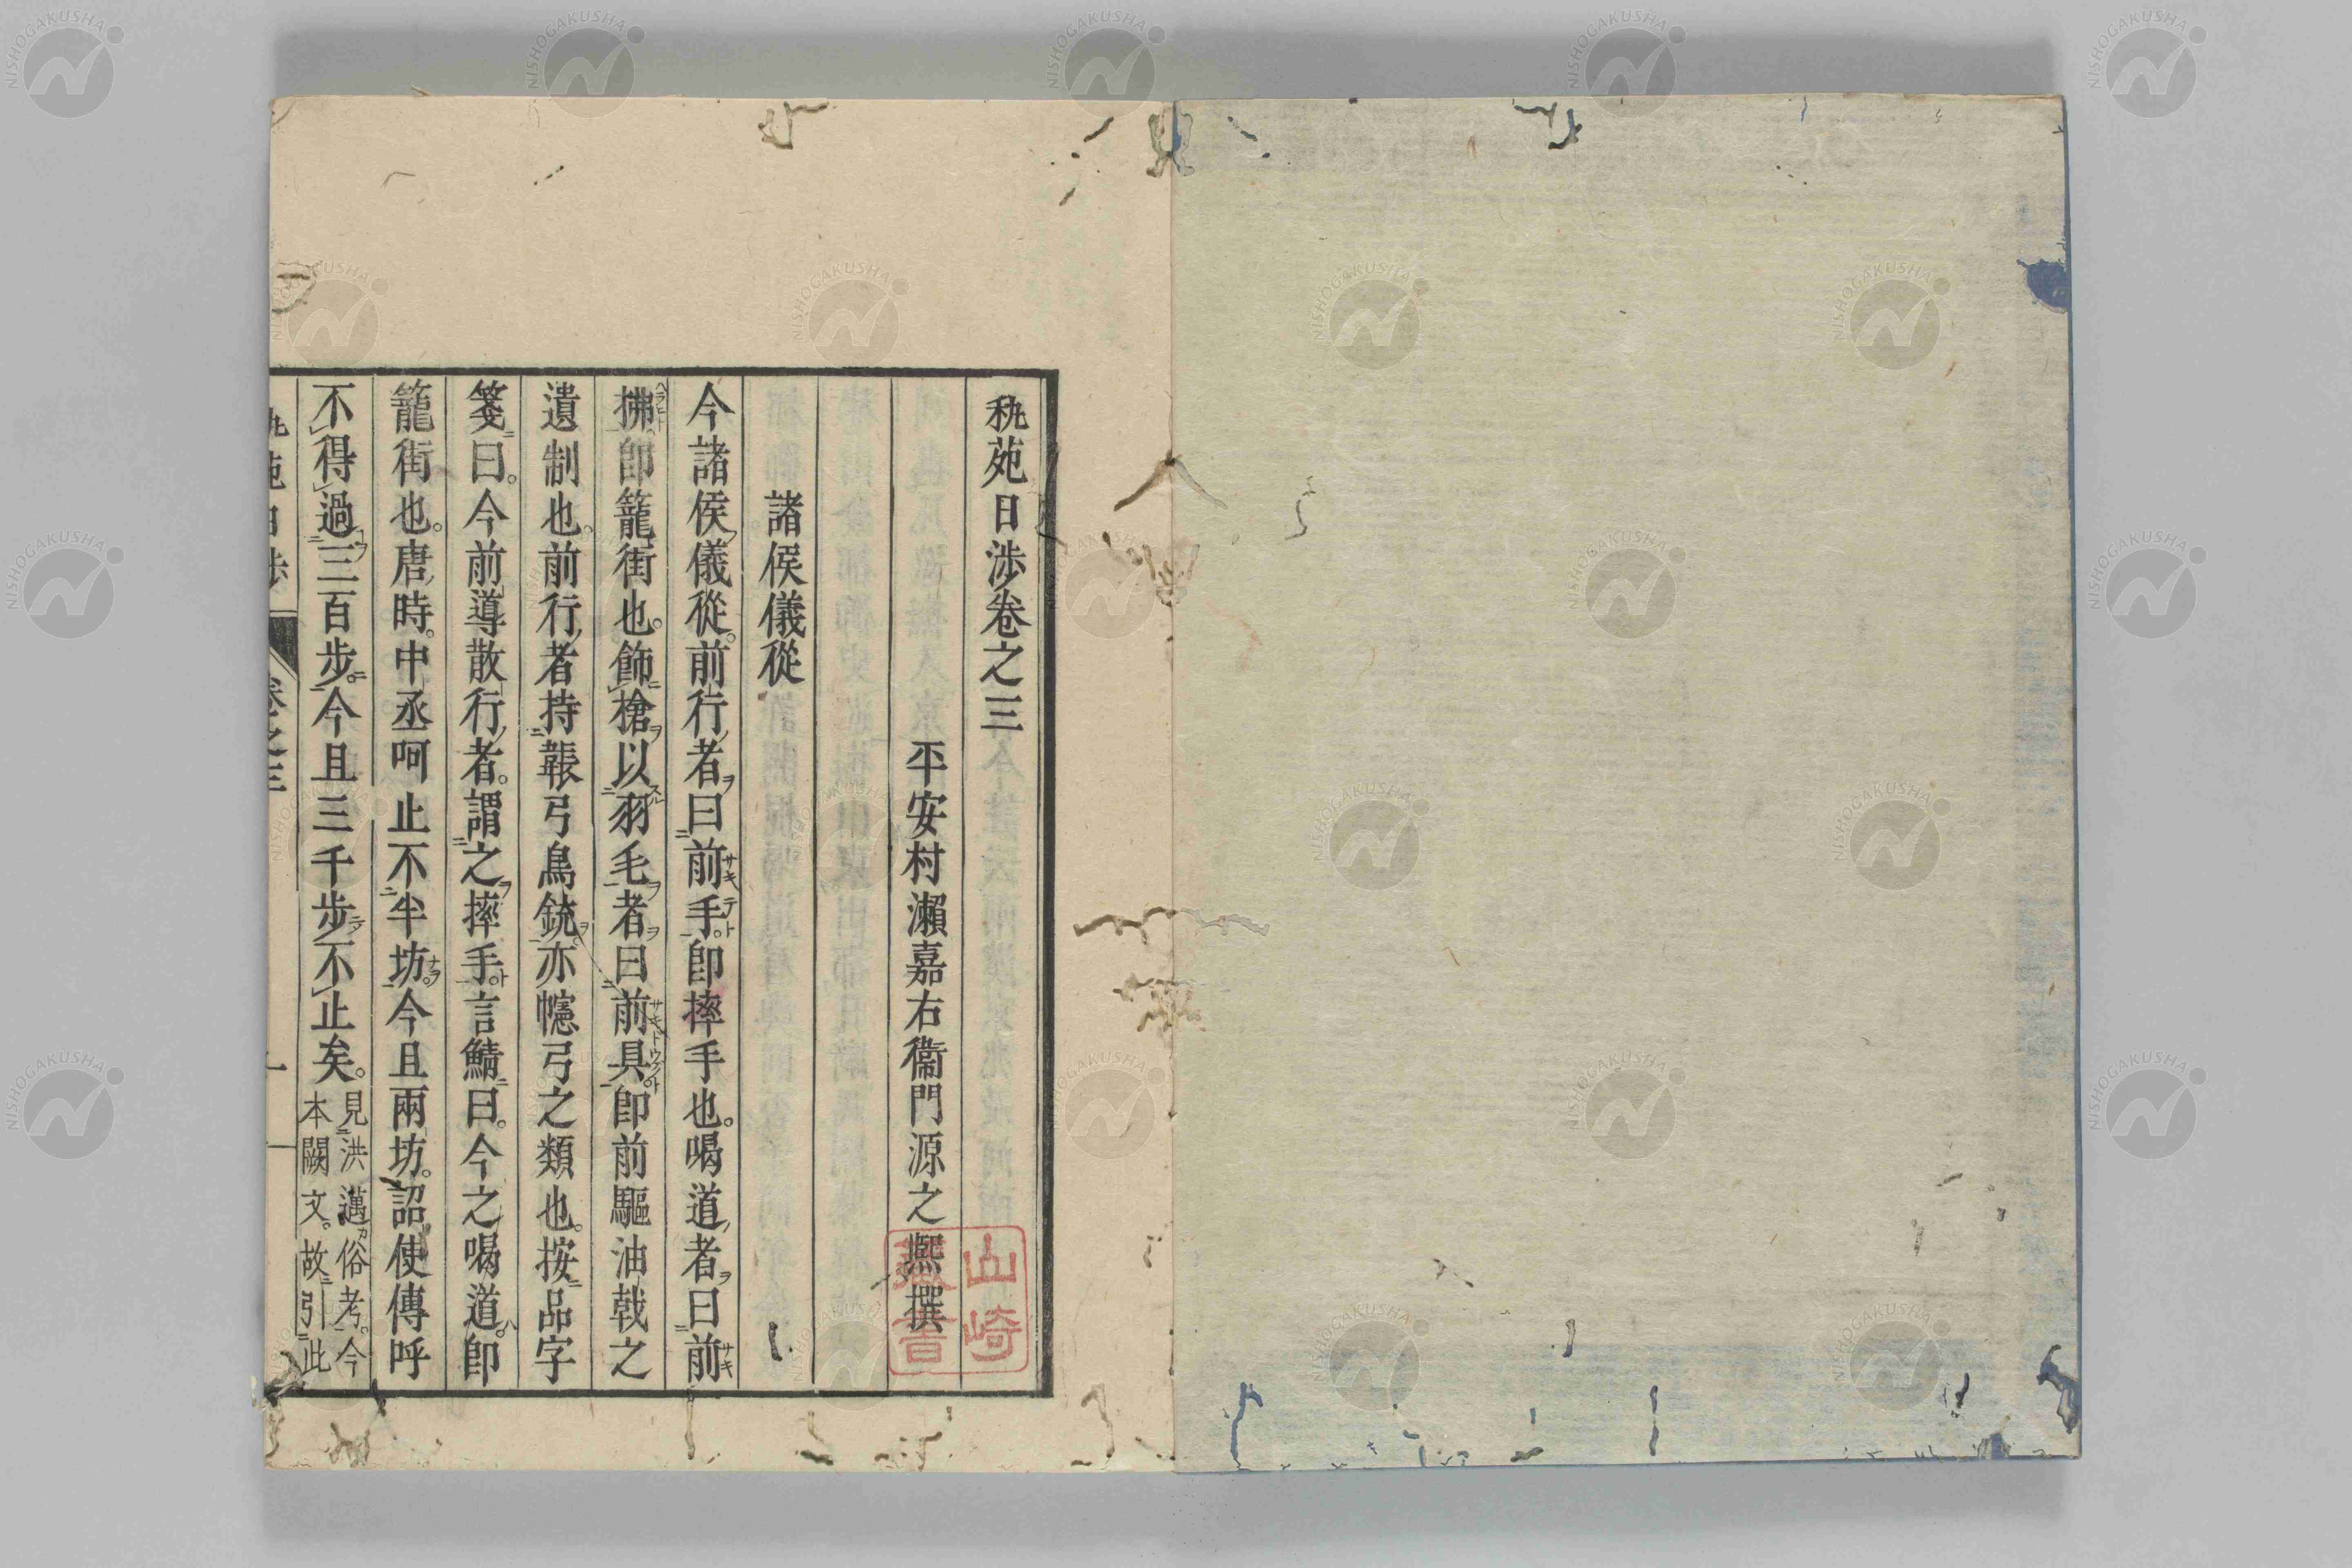 秇苑日涉卷之三
平安村瀨嘉右衞門源之熈撰
諸侯儀從
今諸侯儀從。前行者曰前手。卽摔手也。喝道者曰前
拂。卽籠街也。飾槍以羽毛者曰前具。卽前驅油戟之
遺制也。前行者持韔弓鳥銃。亦幰弓之類也。按品字
箋曰。今前導散行者。謂之摔手。言鯖曰。今之喝道。卽
籠街也。唐時。中丞呵止不半坊。今且兩坊。詔使傳呼
不得過三百步。今且三千步不止矣。
見洪邁俗考。今
本闕文。故引此
秇苑日涉
卷之三
一
山崎
藏書
NISHOGAKUSHA